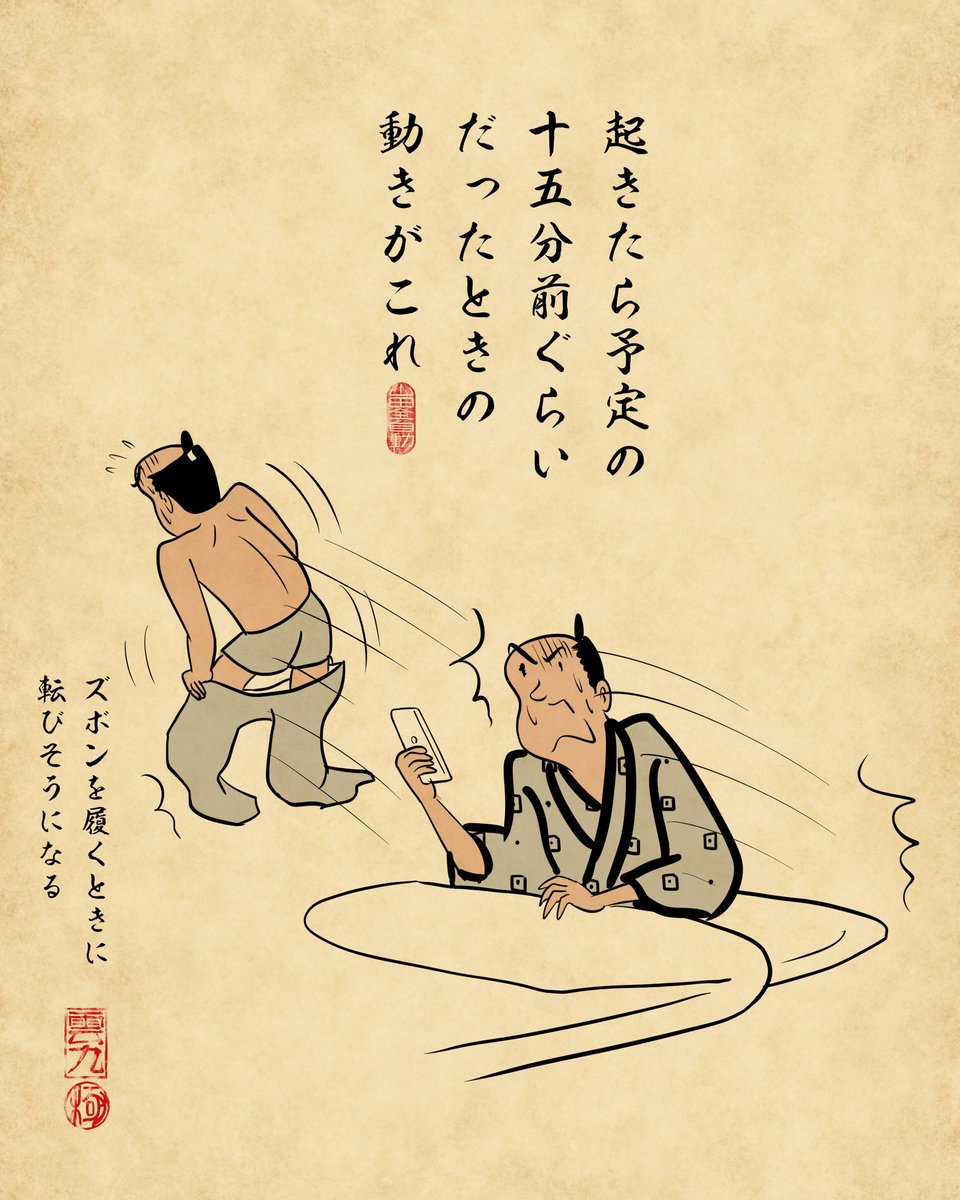 起きたら予定の
十五分前ぐらい
だったときの
動きがこれ
ズボンを履くときに
転びそうになる